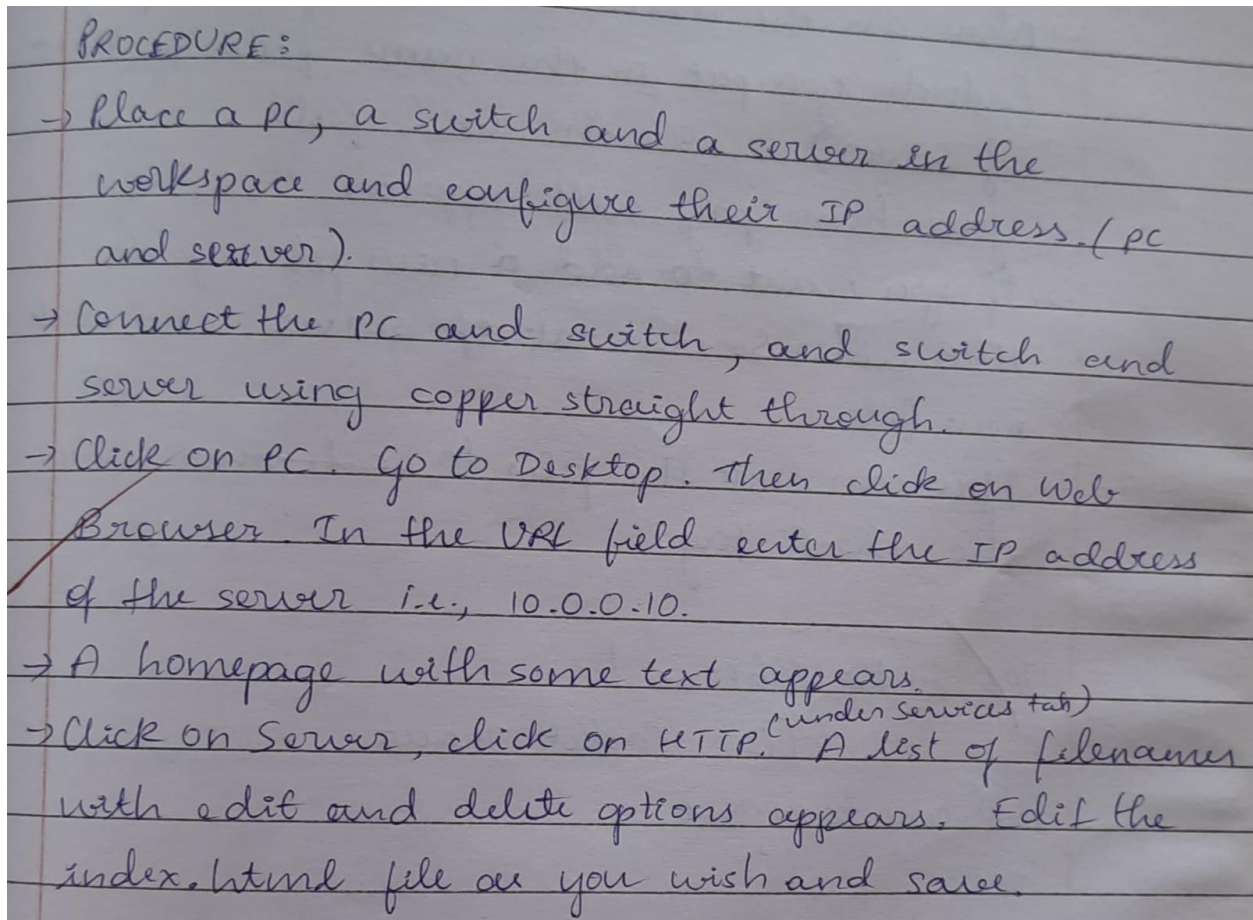 PROCEDURE:
→ Place a PC, a switch and a server in the
workspace and configure their IP address. (PC
and server).
→ Connect the PC and switch, and switch and
server using copper straight through.
→ Click on PC. Go to Desktop. Then click on Web
Browser. In the URL field enter the IP address
of the server i.e., 10.0.0.10.
→ A homepage with some text appears.
(under services tab)
→ Click on Server, click on HTTP. A list of filenames
with edit and delete options appears. Edit the
index.html file as you wish and save.